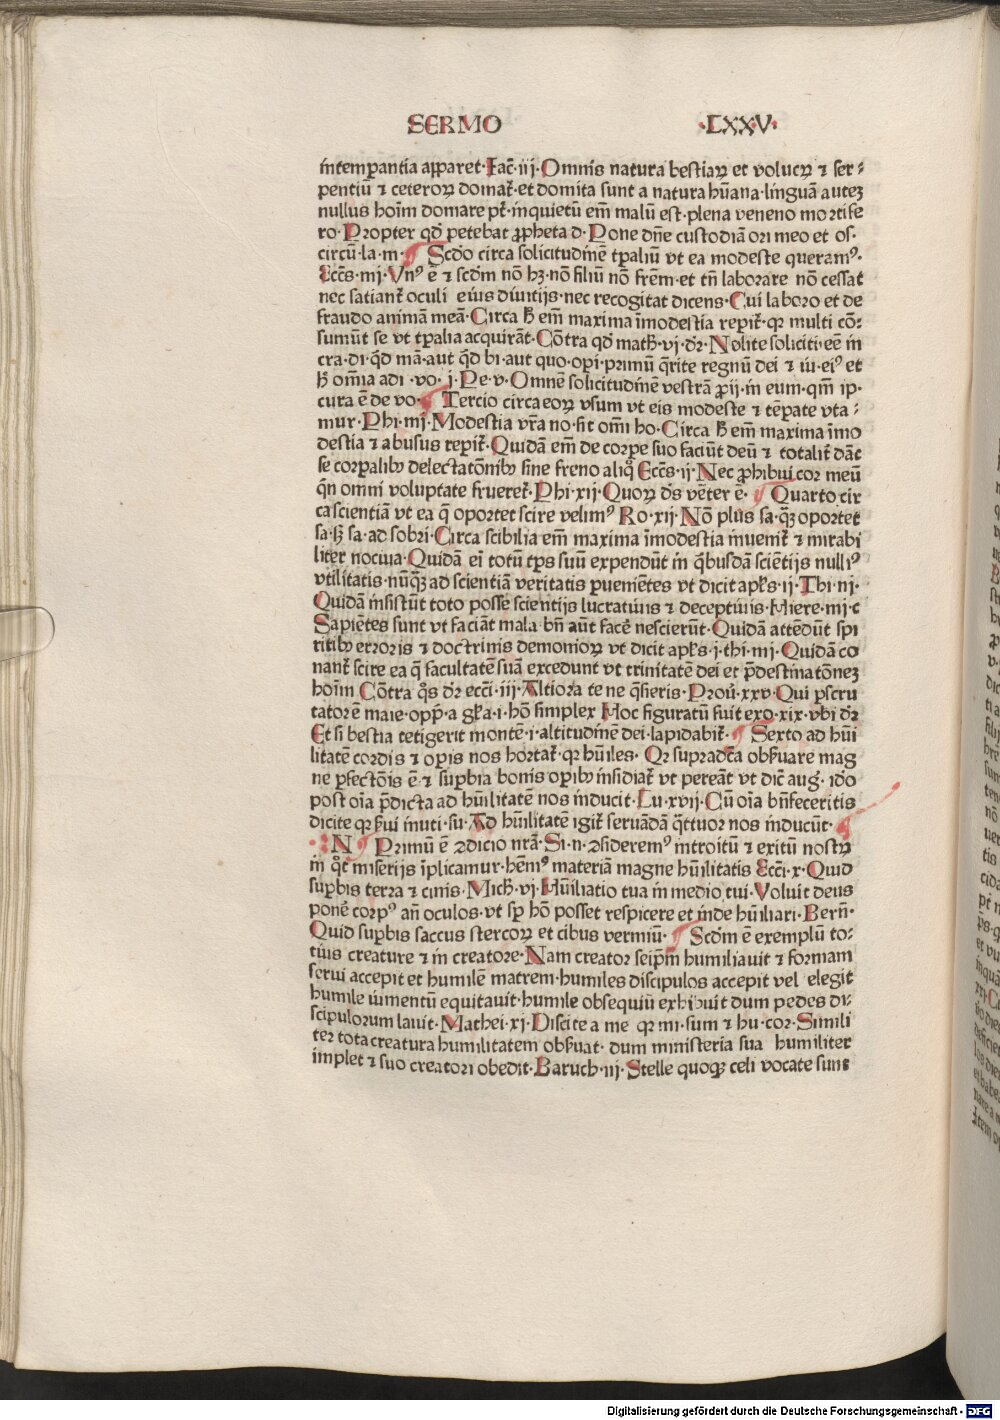 SERMO ·LXXV·
intemperantia apparet· Iac̄·iij· Omnis natura bestiaꝝ et volucꝝ ⁊ ser⸗
pentiū ⁊ ceteroꝝ domat̄· et domita sunt a natura hūana· linguā autez
nullus hoīm domare pt̄· inquietū em̄ malū est· plena veneno mortife
ro· Propter qd̛ petebat ꝓpheta d· Pone dn̄e custodiā ori meo et os·
circū·la·m· Scd̛o circa solicitudinē tꝑaliū vt ea modeste queramꝰ·
Eccēs·iiij· Vnꝰ ē ⁊ scdm nō hꝫ· nō filiū nō frēm· et tn̄ laborare nō cessat
nec satiant̄ oculi eius diuitijs· nec recogitat dicens· Cui laboro et de
fraudo animā meā· Circa ħ em̄ maxima īmodestia reꝑit̄· qꝛ multi cō⸗
sumūt se vt tꝑalia acquirāt· Cōtra qd̛ math̄·vj·dr̄· Nolite soliciti·eē in
cra·di·qd̛ mā·aut qd̛ bi·aut quo·opi·primū q̄rite regnū dei ⁊ iu·eiꝰ et
ħ om̄ia adi·vo· j·Pe·v· Omnē solicitudinē vestrā ꝓij·in eum·qm̄ ip·
cura ē de vo· Tercio circa eoꝝ vsum vt eis modeste ⁊ tēꝑate vta⸗
mur· Phi·iiij· Modestia vr̄a no·sit om̄i ho· Circa ħ em̄ maxima īmo
destia ⁊ abusus reꝑit̄· Quidā em̄ de corꝑe suo faciūt deū ⁊ totalit̄ dāt
se corꝑalibꝫ delectatōnibꝫ sine freno aliq̄ Eccēs·ij· Nec ꝓhibui cor meū
qn̄ omni voluptate frueret̄· Phi·xij· Quoꝝ ds̄ vēter ē· Quarto cir
ca scientiā vt ea q̄ oportet scire velimꝰ Ro·xij· Nō plus sa·qꝫ oportet
sa·sꝫ sa·ad sobri· Circa scibilia em̄ maxima īmodestia inuenit̄ ⁊ mirabi
liter nociua· Quidā eī totū tꝑs suū expendūt in qͥbusdā sciētijs nulliꝰ
vtilitatis· nūqꝫ ad scientiā veritatis ꝑueniētes vt dicit apl̄s·ij·Thi·iij·
Quidā insistūt toto posse scientijs lucratiuis ⁊ deceptiuis· Hiere·iiij·c
Sapiētes sunt vt faciāt mala· bn̄ aūt facē nescierūt· Quidā attēdūt spi
ritibꝫ erroris ⁊ doctrinis demonioꝝ vt dicit apl̄s·j·thi·iiij· Quidā co
nant̄ scire ea q̄ facultatē suā excedunt vt trinitatē dei et p̄destinatōnez
hoīm Cōtra qͦs dr̄ eccī·iij· Altiora te ne q̄sieris· Proư·xxv· Qui ꝑscru
tator ē maie·opp̄·a gl̄ia·i·hō simplex Hoc figuratū fuit exo·xix·vbi dr̄
Et si bestia tetigerit montē·i·altitudinē dei·lapidabit̄· Sexto ad hūi
litatē cordis ⁊ oꝑis nos hortat̄· qꝛ hūiles· Qꝛ supradc̄a obẜuare mag
ne ꝑfectōis ē· ⁊ suꝑbia bonis oꝑibꝫ insidiat̄ vt pereāt vt dic̄ aug· idō
post oīa p̄dicta ad hūilitatē nos inducit· Lu·xvij· Cū oīa bn̄feceritis
dicite qꝛ ẜui inuti·su· Ad hūilitatē igit̄ seruādā qͣttuor nos inducūt·
N Primū ē ↄdicio nr̄a· Si·n·ↄsideremꝰ introitū ⁊ exitū nostꝝ
in qͦt miserijs īplicamur· hēmꝰ materiā magne hūilitatis Eccī·x· Quid
suꝑbis terra ⁊ cinis· Mich̄·vj· Hūiliatio tua in medio tui· Voluit deus
ponē corpꝰ an̄ oculos· vt sꝑ hō posset respicere et inde hūiliari· Bern̄·
Quid suꝑbis saccus stercoꝝ et cibus vermiū· Scdm ē exemplū to⸗
tius creature ⁊ in creatore· Nam creator seip̄m humiliauit ⁊ formam
serui accepit et humilē matrem· humiles discipulos accepit vel elegit
humile iumentū equitauit· humile obsequiū exhibuit dum pedes di⸗
scipulorum lauit· Mathei·xj· Discite a me qꝛ mi·sum ⁊ hu·cor· Simili
ter tota creatura humilitatem obẜuat· dum ministeria sua humiliter
implet ⁊ suo creatori obedit· Baruch·iij· Stelle quoqꝫ celi vocate sunt
Digitalisierung gefördert durch die Deutsche Forschungsgemeinschaft - DFG